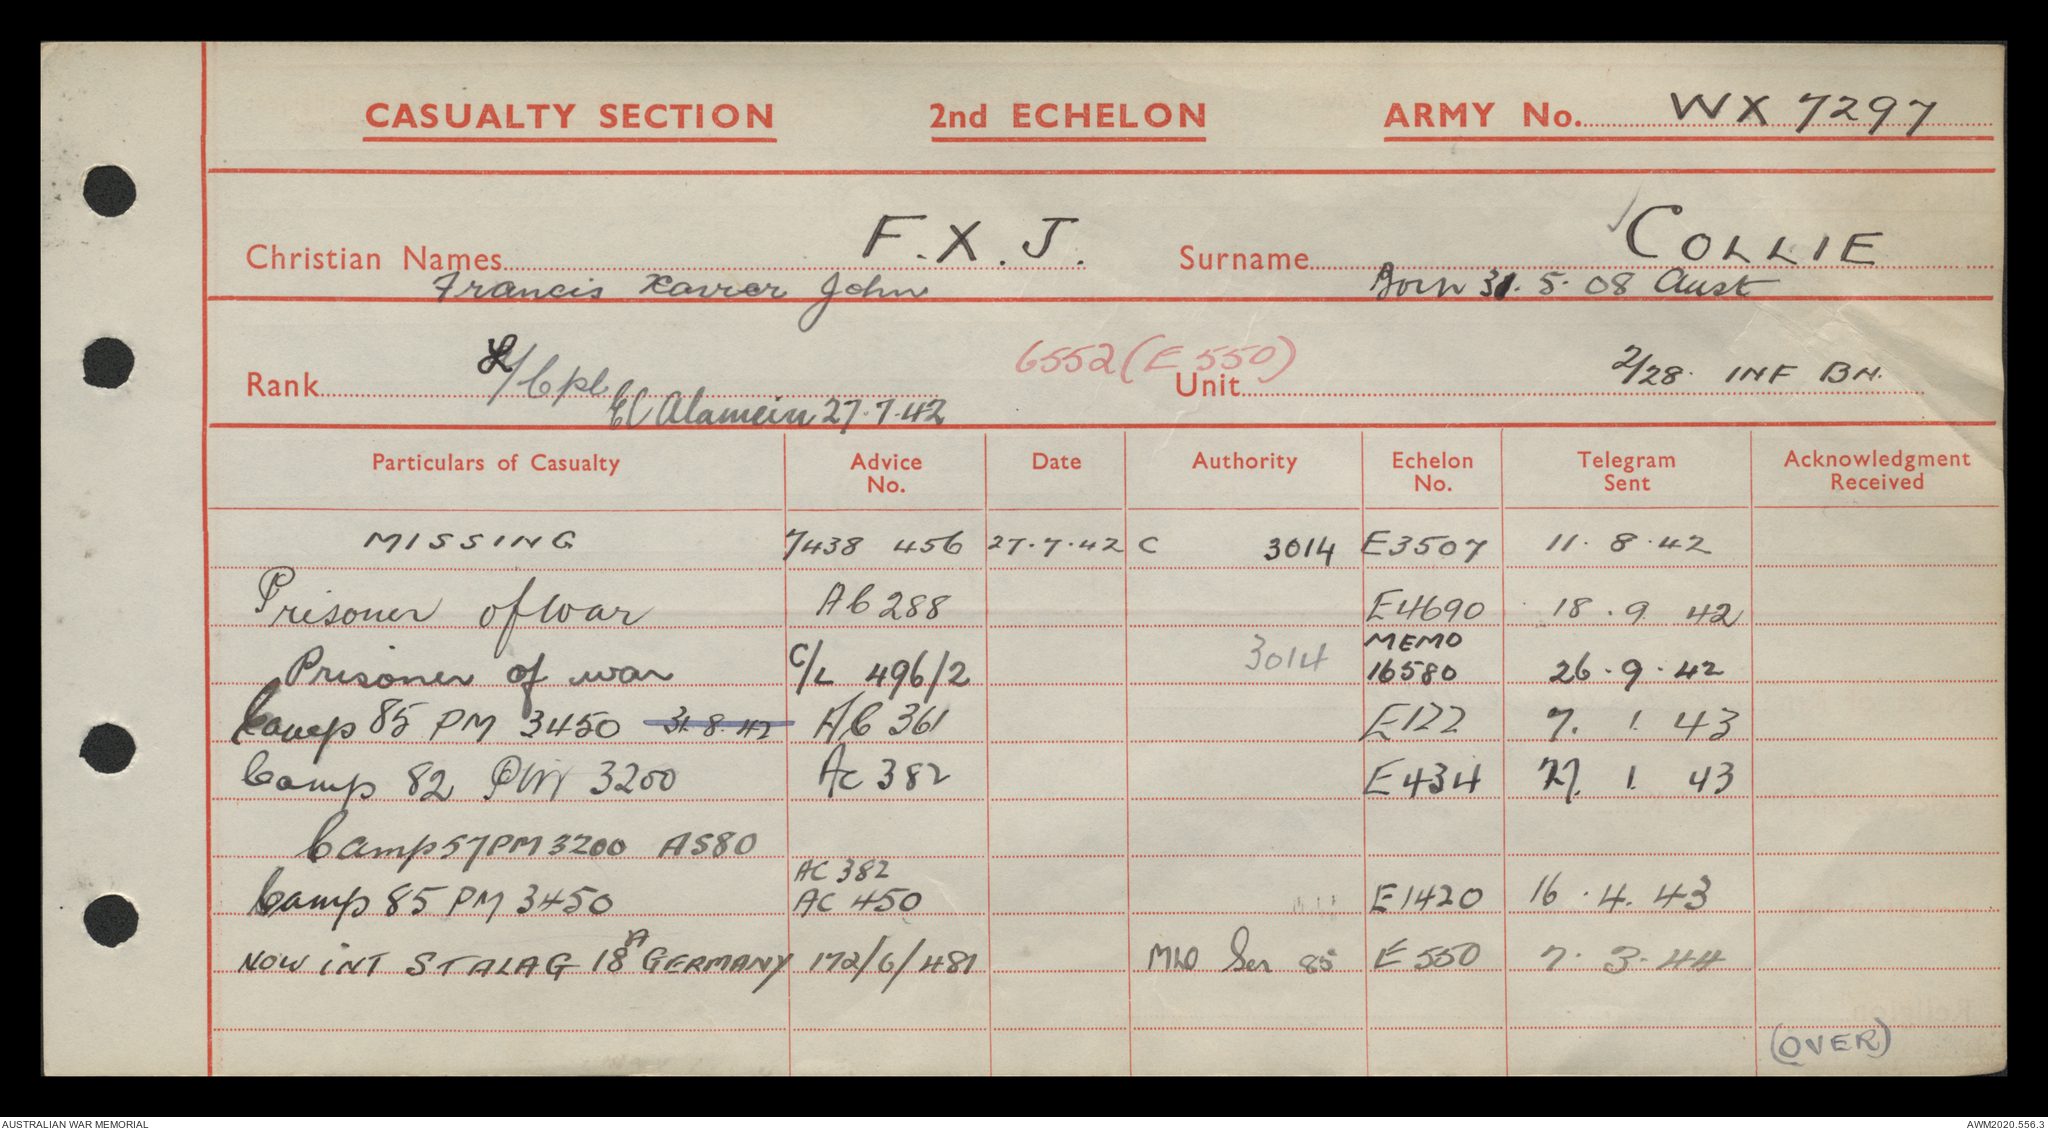 CASUALTY SECTION 2nd ECHELON ARMY No. WX 7297
Christian Names F. X. J. Surname COLLIE
Francis Xavier John Born 31. 5. 08 Aust
Rank L/Cpl 6552 (E 550) Unit 2/28. INF BN.
El Alamein 27.7.42
Particulars of Casualty Advice No. Date Authority Echelon No. Telegram Sent Acknowledgment Received
MISSING 7438 456 27.7.42 C 3014 E3507 11. 8. 42
Prisoner of war AC 288 E4690 18. 9 42
Prisoner of war C/L 496/2 3014 MEMO 16580 26. 9. 42
Camp 85 PM 3450 31.8.42 AC 361 E122 7. 1. 43
Camp 82 PM 3200 AC 382 E434 27. 1. 43
Camp 57 PM 3200 AS80
AC 382
Camp 85 PM 3450 AC 450 E1420 16. 4. 43
NOW INT STALAG 18A GERMANY 172/6/481 MLO Ser 85 E 550 7. 3. 44
(OVER)
AUSTRALIAN WAR MEMORIAL AWM2020.556.3